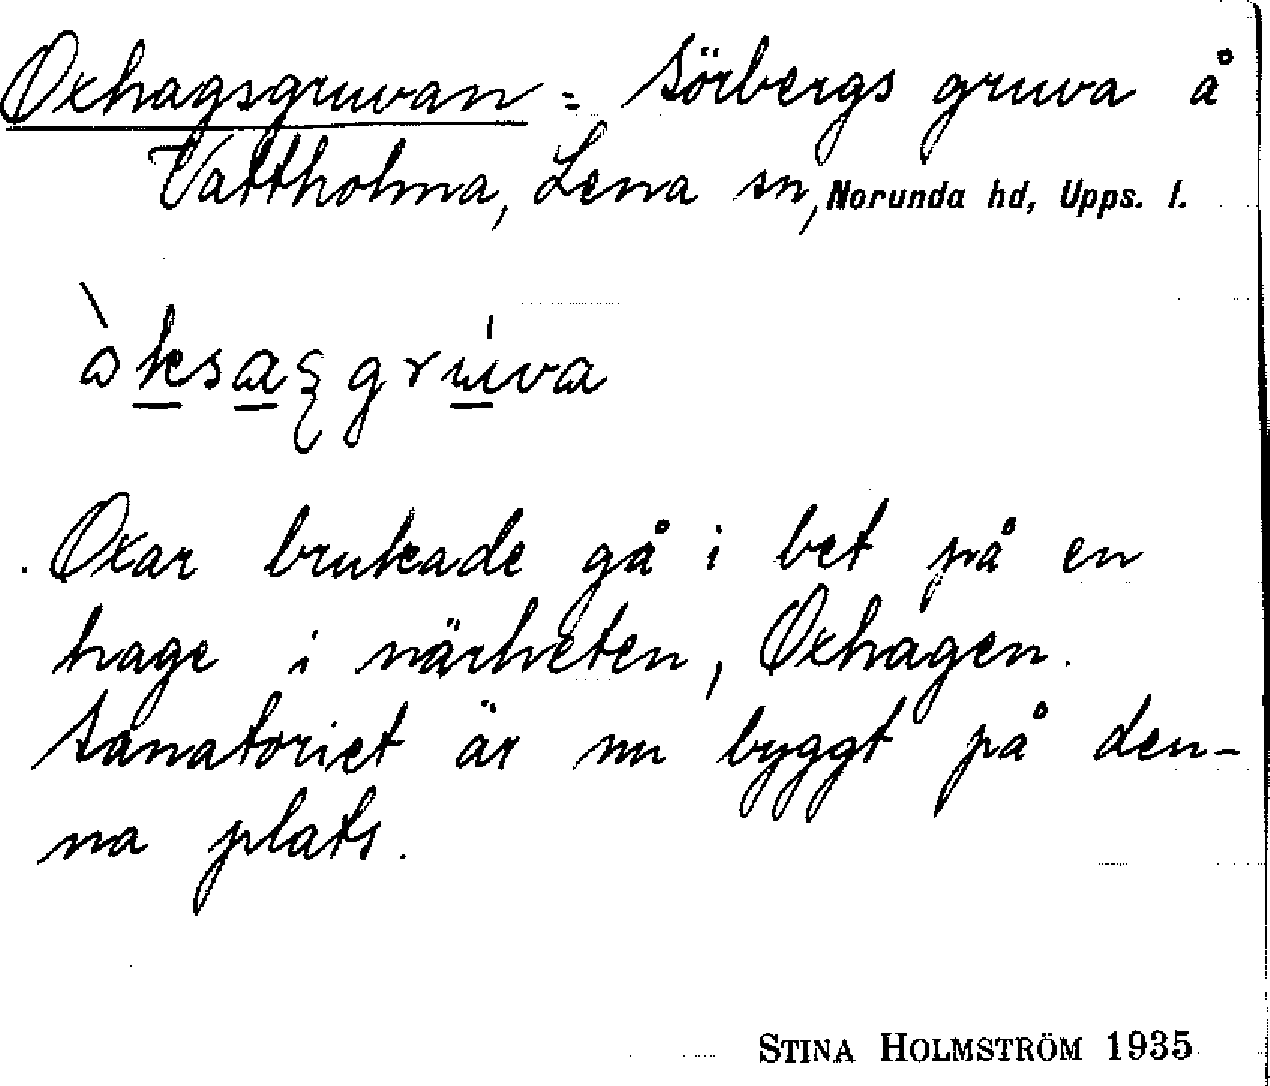 Oxhagsgruvan = Sörbergs gruva å
Vattholma, Lena sn, Norunda hd, Upps. l.
Oxar brukade gå i bet på en
hage i närheten, Oxhagen.
Sanatoriet är nu byggt på den-
na plats.
STINA HOLMSTRÖM 1935